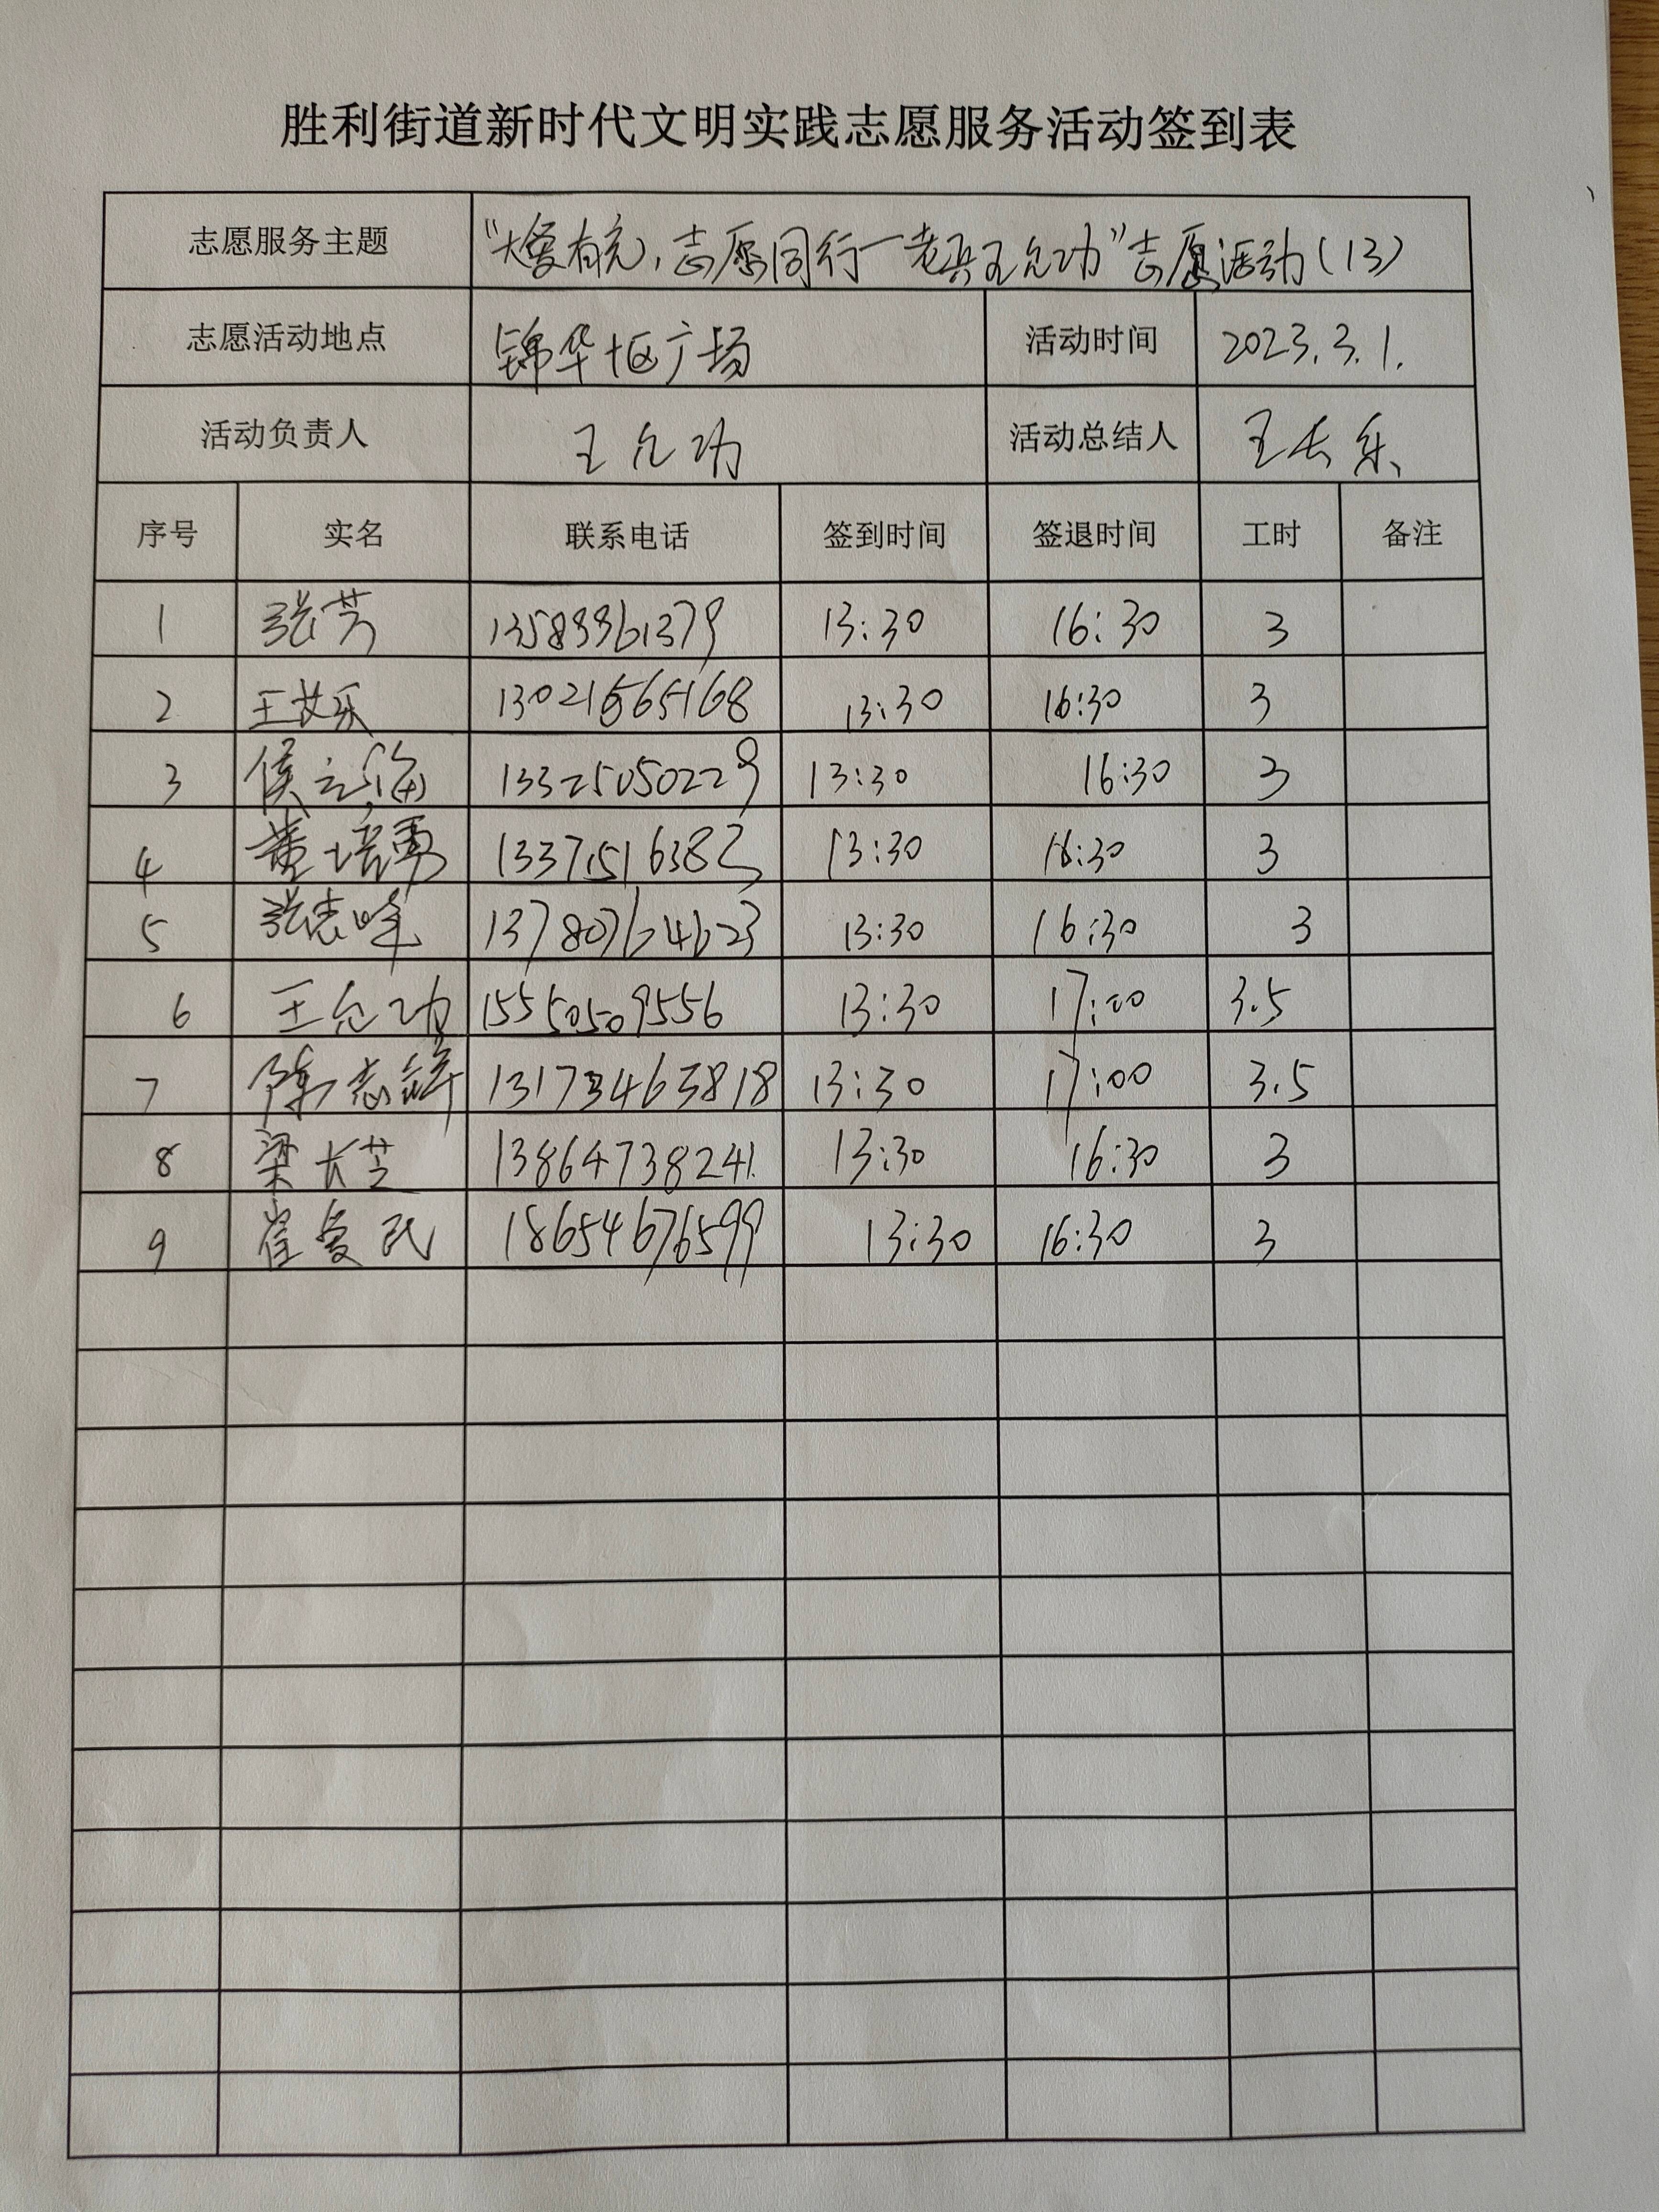 胜利街道新时代文明实践志愿服务活动签到表
志愿服务主题 “大爱有光，志愿同行一老兵王允功”志愿活动（13）
志愿活动地点 锦华七区广场 活动时间 2023.3.1.
活动负责人 王允功 活动总结人 王长乐
序号 实名 联系电话 签到时间 签退时间 工时 备注
1 张芳 13:30 16:30 3
2 13021565168 13:30 16:30 3
3 侯立海 13325050229 13:30 16:30 3
4 黄培勇 13:30 16:30 3
5 张志峰 13780764623 13:30 16:30 3
6 王允功 15550509556 13:30 17:00 3.5
7 13173463818 13:30 17:00 3.5
8 梁长芝 13864738241 13:30 16:30 3
9 崔爱民 18654676599 13:30 16:30 3